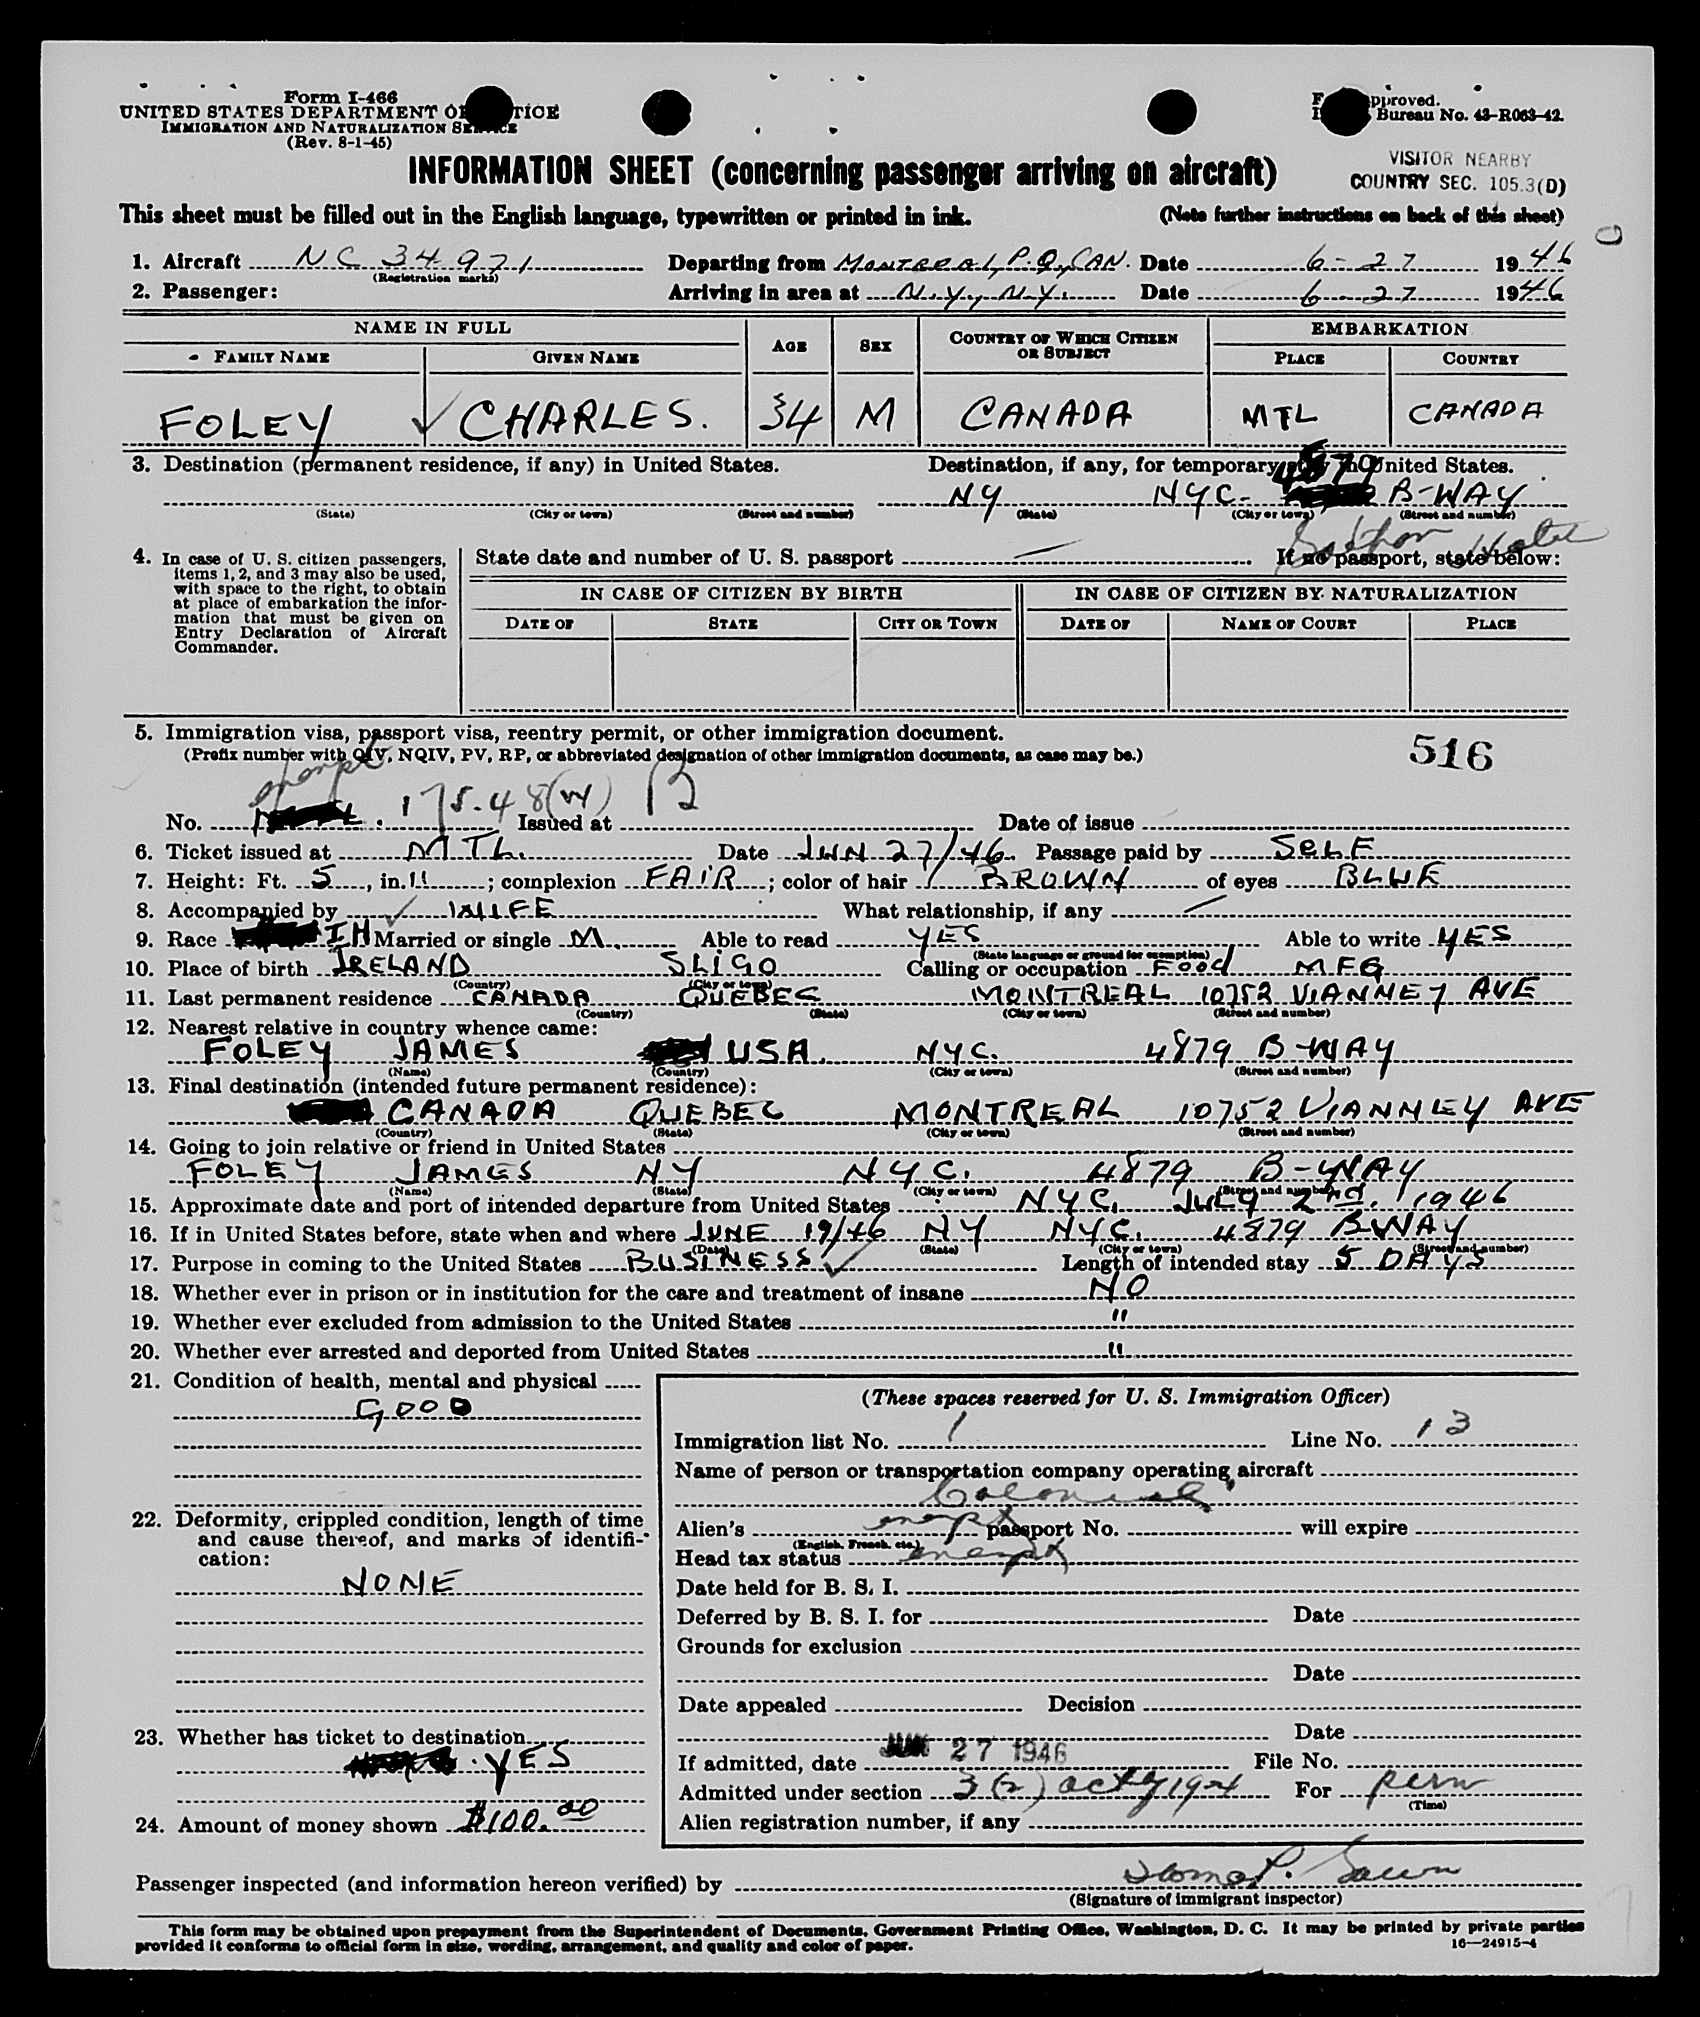 Form I-466
UNITED STATES DEPARTMENT OF JUSTICE
IMMIGRATION AND NATURALIZATION SERVICE
(Rev. 8-1-45)
Approved.
Bureau No. 43-R063-42.
INFORMATION SHEET (concerning passenger arriving on aircraft)
VISITOR NEARBY
COUNTRY SEC. 105.3(D)
This sheet must be filled out in the English language, typewritten or printed in ink. (Note further instructions on back of this sheet)
1. Aircraft NC 34971 Departing from MONTREAL, P.Q, CAN. Date 6-27 1946
(Registration marks)
2. Passenger: Arriving in area at N.Y., N.Y. Date 6-27 1946
NAME IN FULL EMBARKATION
FAMILY NAME GIVEN NAME AGE SEX COUNTRY OF WHICH CITIZEN OR SUBJECT PLACE COUNTRY
FOLEY CHARLES. 34 M CANADA MTL CANADA
3. Destination (permanent residence, if any) in United States. Destination, if any, for temporary stay in United States.
NY NYC- 4879 B-WAY
(State) (City or town) (Street and number) (State) (City or town) (Street and number)
Hotel
4. In case of U. S. citizen passengers, items 1, 2, and 3 may also be used, with space to the right, to obtain at place of embarkation the information that must be given on Entry Declaration of Aircraft Commander.
State date and number of U. S. passport — If no passport, state below:
IN CASE OF CITIZEN BY BIRTH IN CASE OF CITIZEN BY NATURALIZATION
DATE OF STATE CITY OR TOWN DATE OF NAME OF COURT PLACE
5. Immigration visa, passport visa, reentry permit, or other immigration document.
(Prefix number with QIV, NQIV, PV, RP, or abbreviated designation of other immigration documents, as case may be.)
516
exempt
No. 175.48(w) B Issued at Date of issue
6. Ticket issued at MTL. Date JUN 27/46. Passage paid by SELF
7. Height: Ft. 5, in. 11; complexion FAIR; color of hair BROWN of eyes BLUE
8. Accompanied by WIFE What relationship, if any —
9. Race IH Married or single M. Able to read YES Able to write YES
(State language or ground for exemption)
10. Place of birth IRELAND SLIGO Calling or occupation FOOD MFG
(Country) (City or town)
11. Last permanent residence CANADA QUEBEC MONTREAL 10752 VIANNEY AVE
(Country) (State) (City or town) (Street and number)
12. Nearest relative in country whence came:
FOLEY JAMES USA. NYC. 4879 B-WAY
(Name) (Country) (City or town) (Street and number)
13. Final destination (intended future permanent residence):
CANADA QUEBEC MONTREAL 10752 VIANNEY AVE
(Country) (State) (City or town) (Street and number)
14. Going to join relative or friend in United States
FOLEY JAMES NY NYC. 4879 B-WAY
(Name) (State) (City or town) (Street and number)
15. Approximate date and port of intended departure from United States NYC. JULY 2nd. 1946
16. If in United States before, state when and where JUNE 19/46 NY NYC. 4879 B-WAY
(Date) (State) (City or town) (Street and number)
17. Purpose in coming to the United States BUSINESS Length of intended stay 5 DAYS
18. Whether ever in prison or in institution for the care and treatment of insane NO
19. Whether ever excluded from admission to the United States "
20. Whether ever arrested and deported from United States "
21. Condition of health, mental and physical
GOOD
22. Deformity, crippled condition, length of time and cause thereof, and marks of identification:
NONE
23. Whether has ticket to destination
YES
24. Amount of money shown $100.00
(These spaces reserved for U. S. Immigration Officer)
Immigration list No. 1 Line No. 13
Name of person or transportation company operating aircraft
Colonial
Alien's exempt passport No. will expire
(English, French, etc.)
Head tax status exempt
Date held for B. S. I.
Deferred by B. S. I. for Date
Grounds for exclusion
Date
Date appealed Decision
Date
If admitted, date JUN 27 1946 File No.
Admitted under section 3(2) act of 1924 For perm
(Time)
Alien registration number, if any
Passenger inspected (and information hereon verified) by
(Signature of immigrant inspector)
This form may be obtained upon prepayment from the Superintendent of Documents, Government Printing Office, Washington, D. C. It may be printed by private parties
provided it conforms to official form in size, wording, arrangement, and quality and color of paper.
16—24915-4